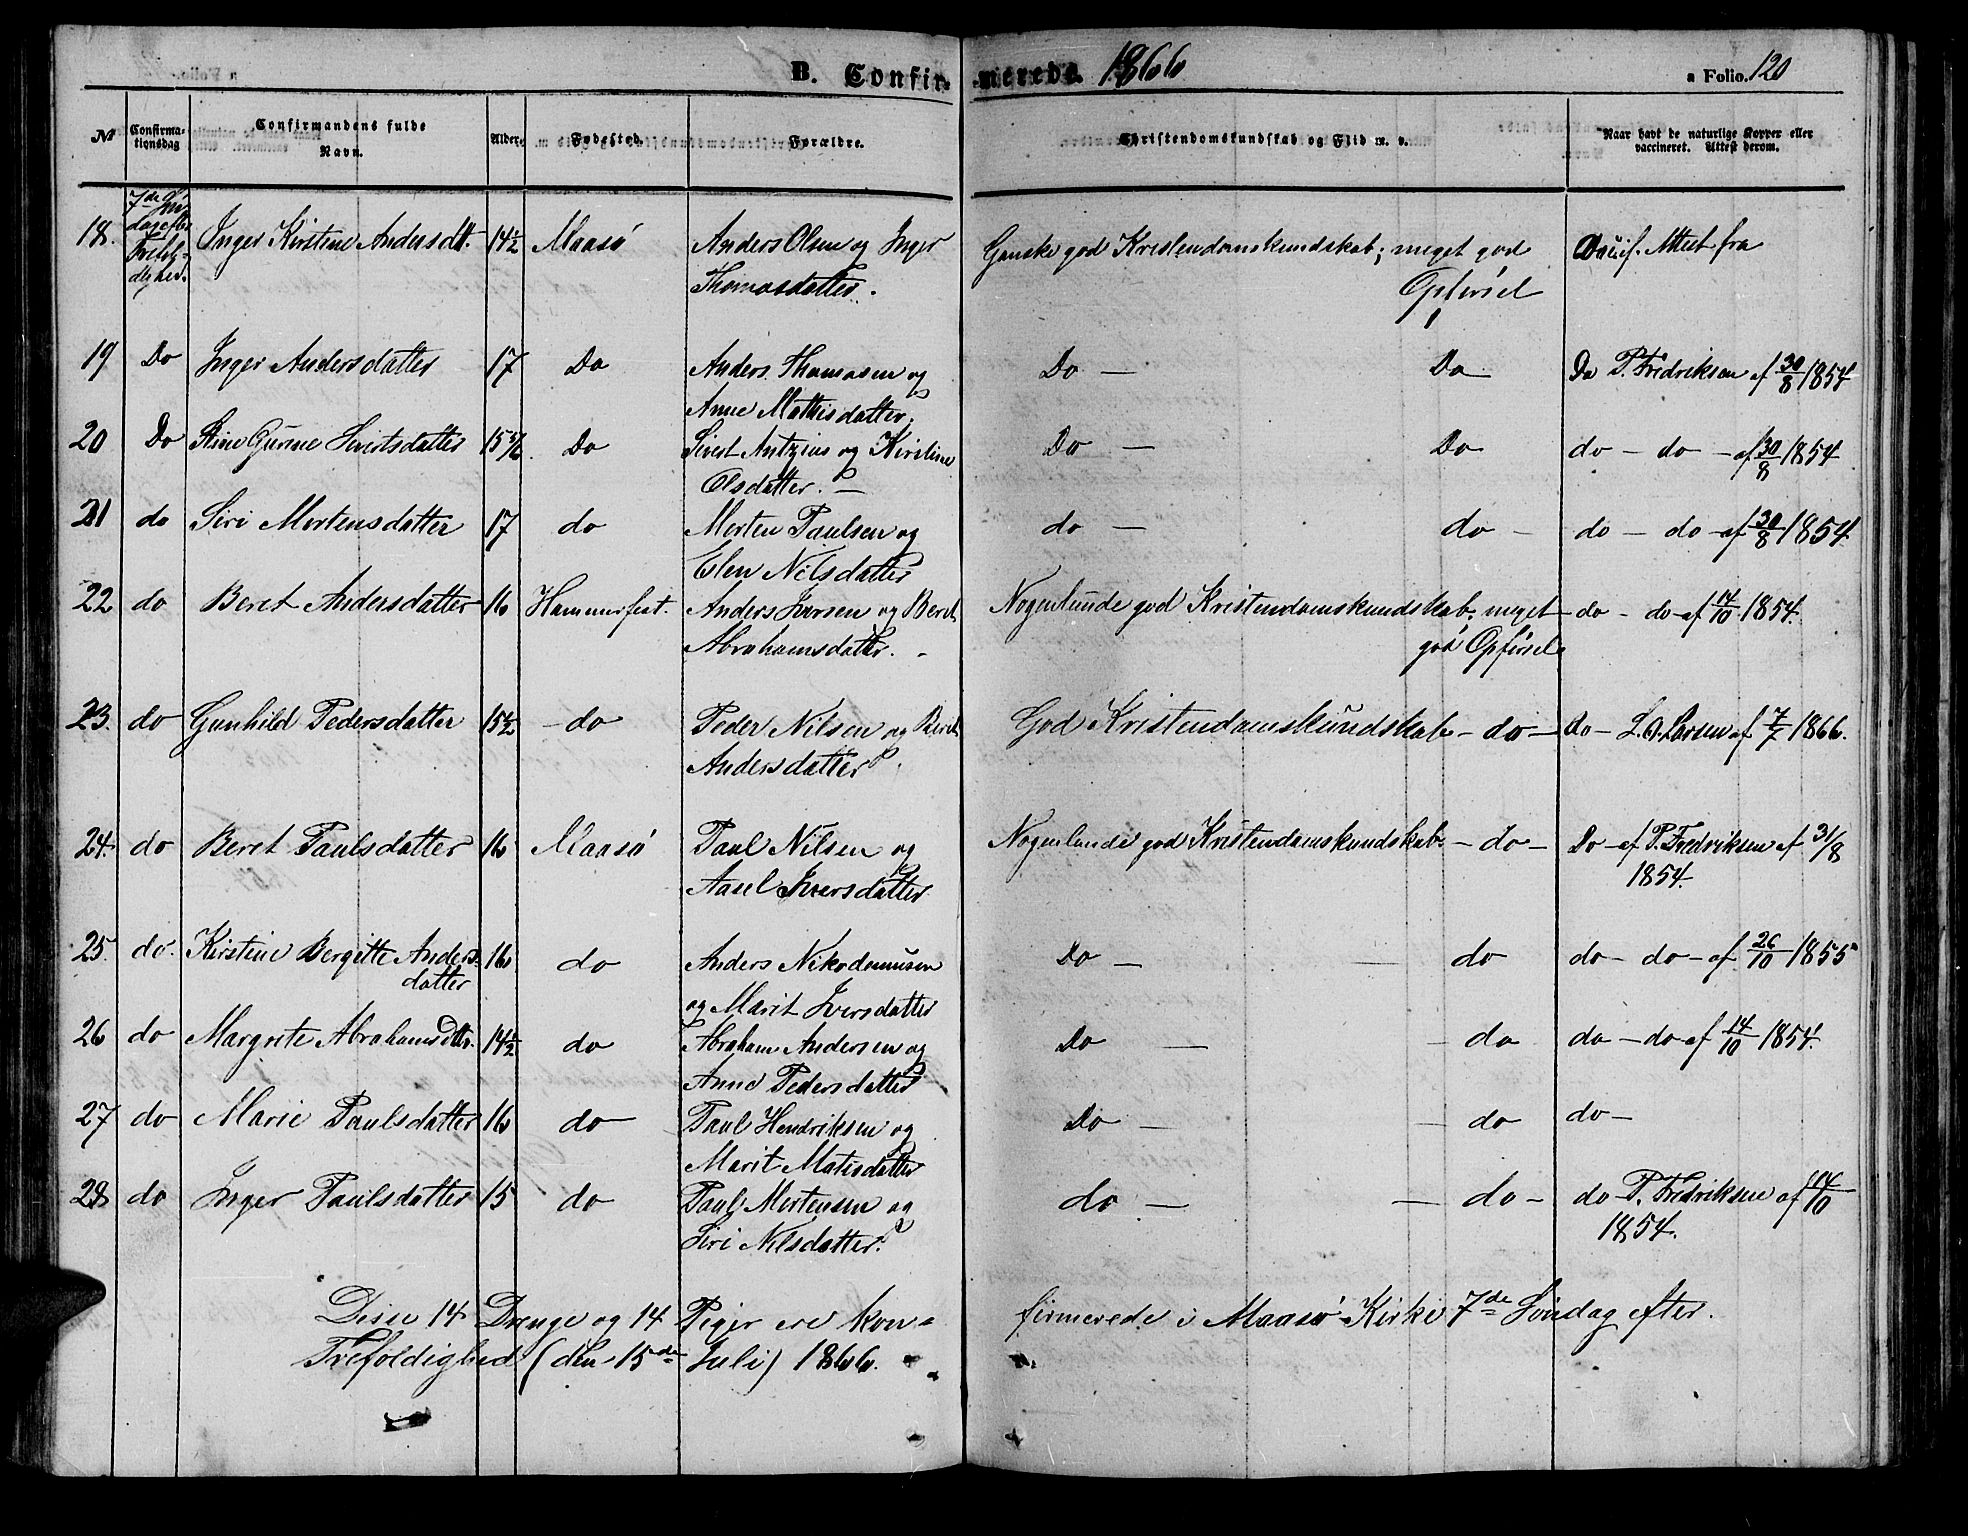 B. Confir- -merede. 1866
a Folio. 120
No Confirma-tionsdag Confirmandens fulde Navn. Alder. Fødested. Forældre. Christendomskundskab og Flid m. v. Naar havt de naturlige Kopper eller vaccineret. Attest derom.
18. 7de Søn- dag efter Trefol- dighed. Inger Kirstine Andersdtt. 14½ Maasø Anders Olsen og Inger Ganske god Kristendomskundskab; meget god Attest fra
Thomasdatter. Opførsel
19 Do Inger Andersdatter 17 Do Anders Thomasen og Do — Do Do P. Fredriksen af 30/8 1854
Anne Mathisdatter.
20 Do Stine Gurine Sivertsdatter 15 Do Sivert Antzius og Kirstine Do — Do do — do — af 30/8 1854
Olsdatter. —
21 do Siri Mortensdatter 17 do Morten Paulsen og do — do — do — do — af 30/8 1854
Elen Nilsdatter
22 do Beret Andersdatter 16 Hammerfest. Anders Iversen og Beret Nogenlunde god Kristendomskundskab, meget do — do af 14/10 1854.
Abrahamsdatter. - god Opførsel
23. do Gunhild Pedersdatter 15½ - do Peder Nilsen og Beret God Kristendomskundskab - do — Do — L. O. Larsen af 7/7 1866.
Andersdatter.
24. do Beret Paulsdatter 16 Maasø Paul Nilsen og Nogenlunde god Kristendomskundskab — do — Do — af P. Fredriksen af 31/8
Iversdatter 1854.
25. do. Kirstine Bergitte Anders- 16 do Anders Nikodemusen Do — — do do — do — af 26/10 1855
datter og Marit Iversdatter
26 do Margrete Abrahamsdttr. 14½ do Abraham Andersen og Do — - do do — do af 14/10 1854.
Anne Pedersdatter
27 do Marie Paulsdatter 16 do Paul Hendriksen og Do — — do do —
Marit Matisdatter
28 do Inger Paulsdatter 15 do Paul Mortensen og do — — do — do P. Fredriksen af 14/10
Siri Nilsdatter. 1854.
Disse 14 Drenge og 14 Piger ere kon- firmerede i Maasø Kirke 7de Søndag efter
Trefoldighed (den 15de Juli) 1866.